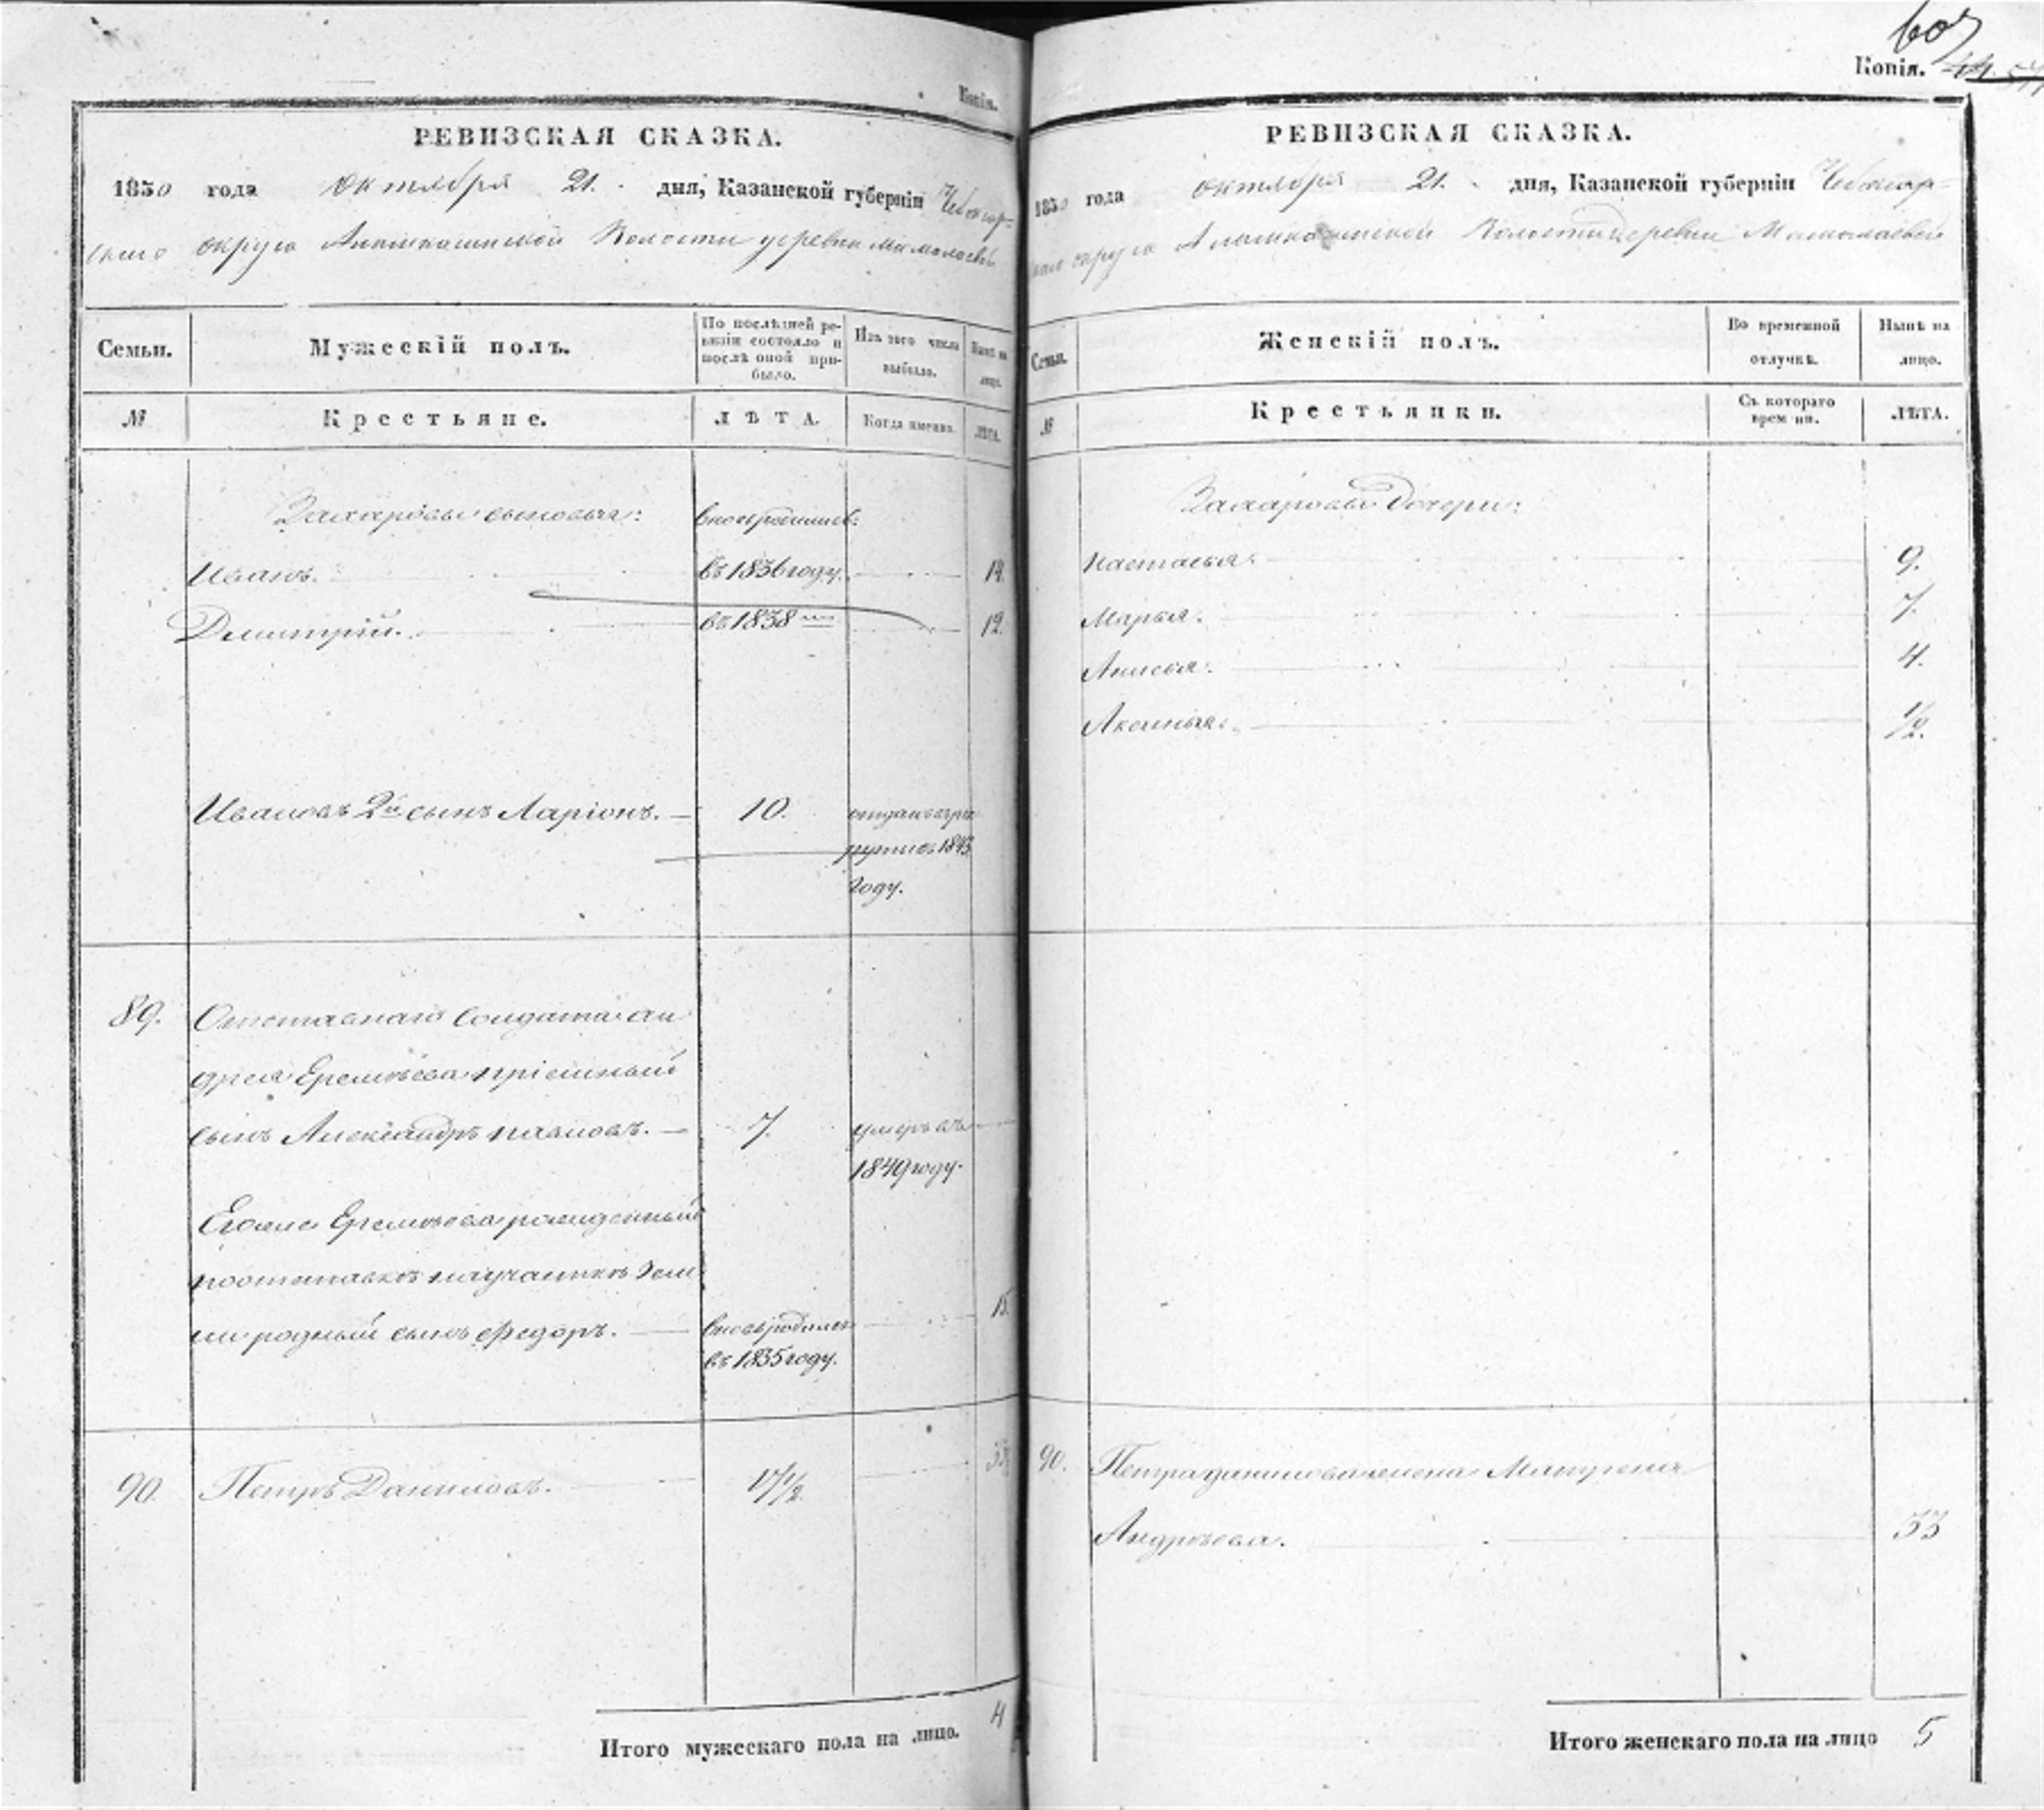 Копія.
РЕВИЗСКАЯ СКАЗКА.
1850 года Октября 21. дня, Казанской губерніи Чебоксар-
скаго округа Волости деревни
Семьи.
Мужескій полъ.
По послѣдней ре-
визіи состояло и
послѣ оной при-
было.
Изъ того числа
выбыло.
Нынѣ на
лицо.
№
Крестьяне.
ЛѢТА.
Когда именно.
ЛѢТА.
Захаровы сыновья: вновь родились:
Иванъ. въ 1836 году. 14.
Димитрій. въ 1838 12.
Ивановъ 2й сынъ Ларіонъ. 10. отданъ въ ре
круты въ 1843
году.
89. Отставнаго Солдата Ан
дрея Еремѣева пріемный
сынъ Александръ Павловъ. 7. умеръ въ
1849 году.
Еремѣева рожденный
родный сынъ Федоръ. вновь родился 15.
въ 1835 году.
90. Петръ Даниловъ. 17 1/2 33
Итого мужескаго пола на лицо. 4
607
Копія.
РЕВИЗСКАЯ СКАЗКА.
1850 года Октября 21. дня, Казанской губерніи Чебоксар-
скаго округа Волости деревни
Семьи.
Женскій полъ.
Во временной
отлучкѣ.
Нынѣ на
лицо.
№
Крестьянки.
Съ котораго
времени.
ЛѢТА.
Захаровы дочери:
Настасья. 9.
Марья. 7.
Анисья. 4.
Аксинья. 1/2.
90. Петра Данилова жена Матрена
Андрѣева. 33
Итого женскаго пола на лицо 5